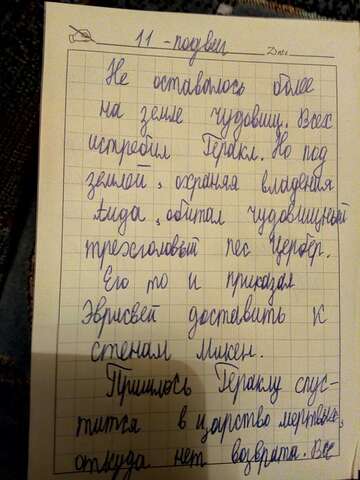 11 - подвиг
Не оставалось более
на земле чудовищ. Всех
истребил Геракл. Но под
землей, охраняя владения
Аида, обитал чудовищный
трехголовый пес Цербер.
Его то и приказал
Эврисвей доставить к
стенам Микен.
Пришлось Гераклу спус-
тится в царство мертвых,
откуда нет возврата. Все